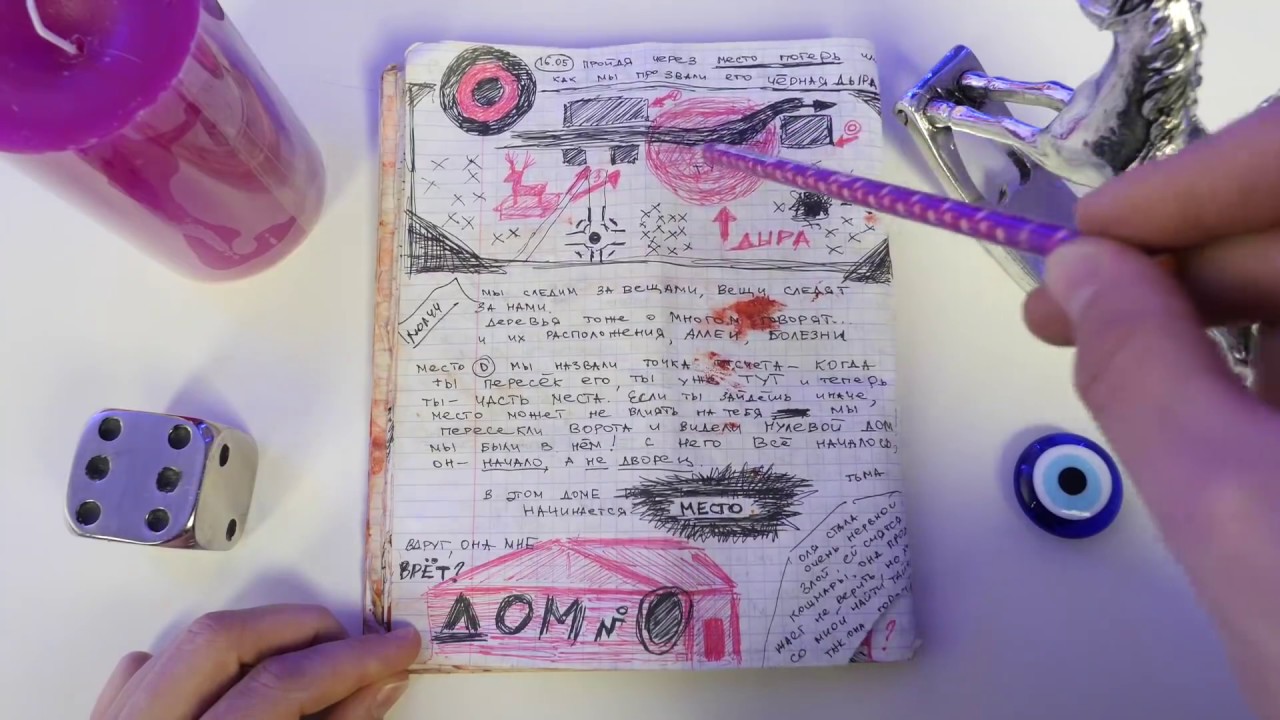 16.05 ПРОЙДЯ ЧЕРЕЗ МЕСТО ПОТЕРЬ И
КАК МЫ ПРОЗВАЛИ ЕГО ЧЁРНАЯ ДЫРА
ДЫРА
КЛЮЧИ
МЫ СЛЕДИМ ЗА ВЕЩАМИ, ВЕЩИ СЛЕДЯТ
ЗА НАМИ.
ДЕРЕВЬЯ ТОЖЕ О МНОГОМ ГОВОРЯТ...
И ИХ РАСПОЛОЖЕНИЯ, АЛЛЕИ, БОЛЕЗНИ
МЕСТО 0 МЫ НАЗВАЛИ ТОЧКА ОТСЧЕТА — КОГДА
ТЫ ПЕРЕСЁК ЕГО, ТЫ УЖЕ ТУТ И ТЕПЕРЬ
ТЫ — ЧАСТЬ МЕСТА. ЕСЛИ ТЫ ЗАЙДЁШЬ ИНАЧЕ,
МЕСТО МОЖЕТ НЕ ВЛИЯТЬ НА ТЕБЯ МЫ
ПЕРЕСЕКЛИ ВОРОТА И ВИДЕЛИ НУЛЕВОЙ ДОМ
МЫ БЫЛИ В НЁМ! С НЕГО ВСЁ НАЧАЛОСЬ,
ОН — НАЧАЛО, А НЕ ДВОРЕЦ
В ЭТОМ ДОМЕ
НАЧИНАЕТСЯ МЕСТО
ТЬМА
ВДРУГ, ОНА МНЕ
ВРЁТ?
ДОМ № 0
ОЛЯ СТАЛА
ОЧЕНЬ НЕРВНОЙ
ЗЛОЙ. ЕЙ СНЯТСЯ
КОШМАРЫ. ОНА ПРОД
ЖАЕТ НЕ ВЕРИТЬ, НО
СО МНОЙ НАЙТИ
ТАК ОНА
?